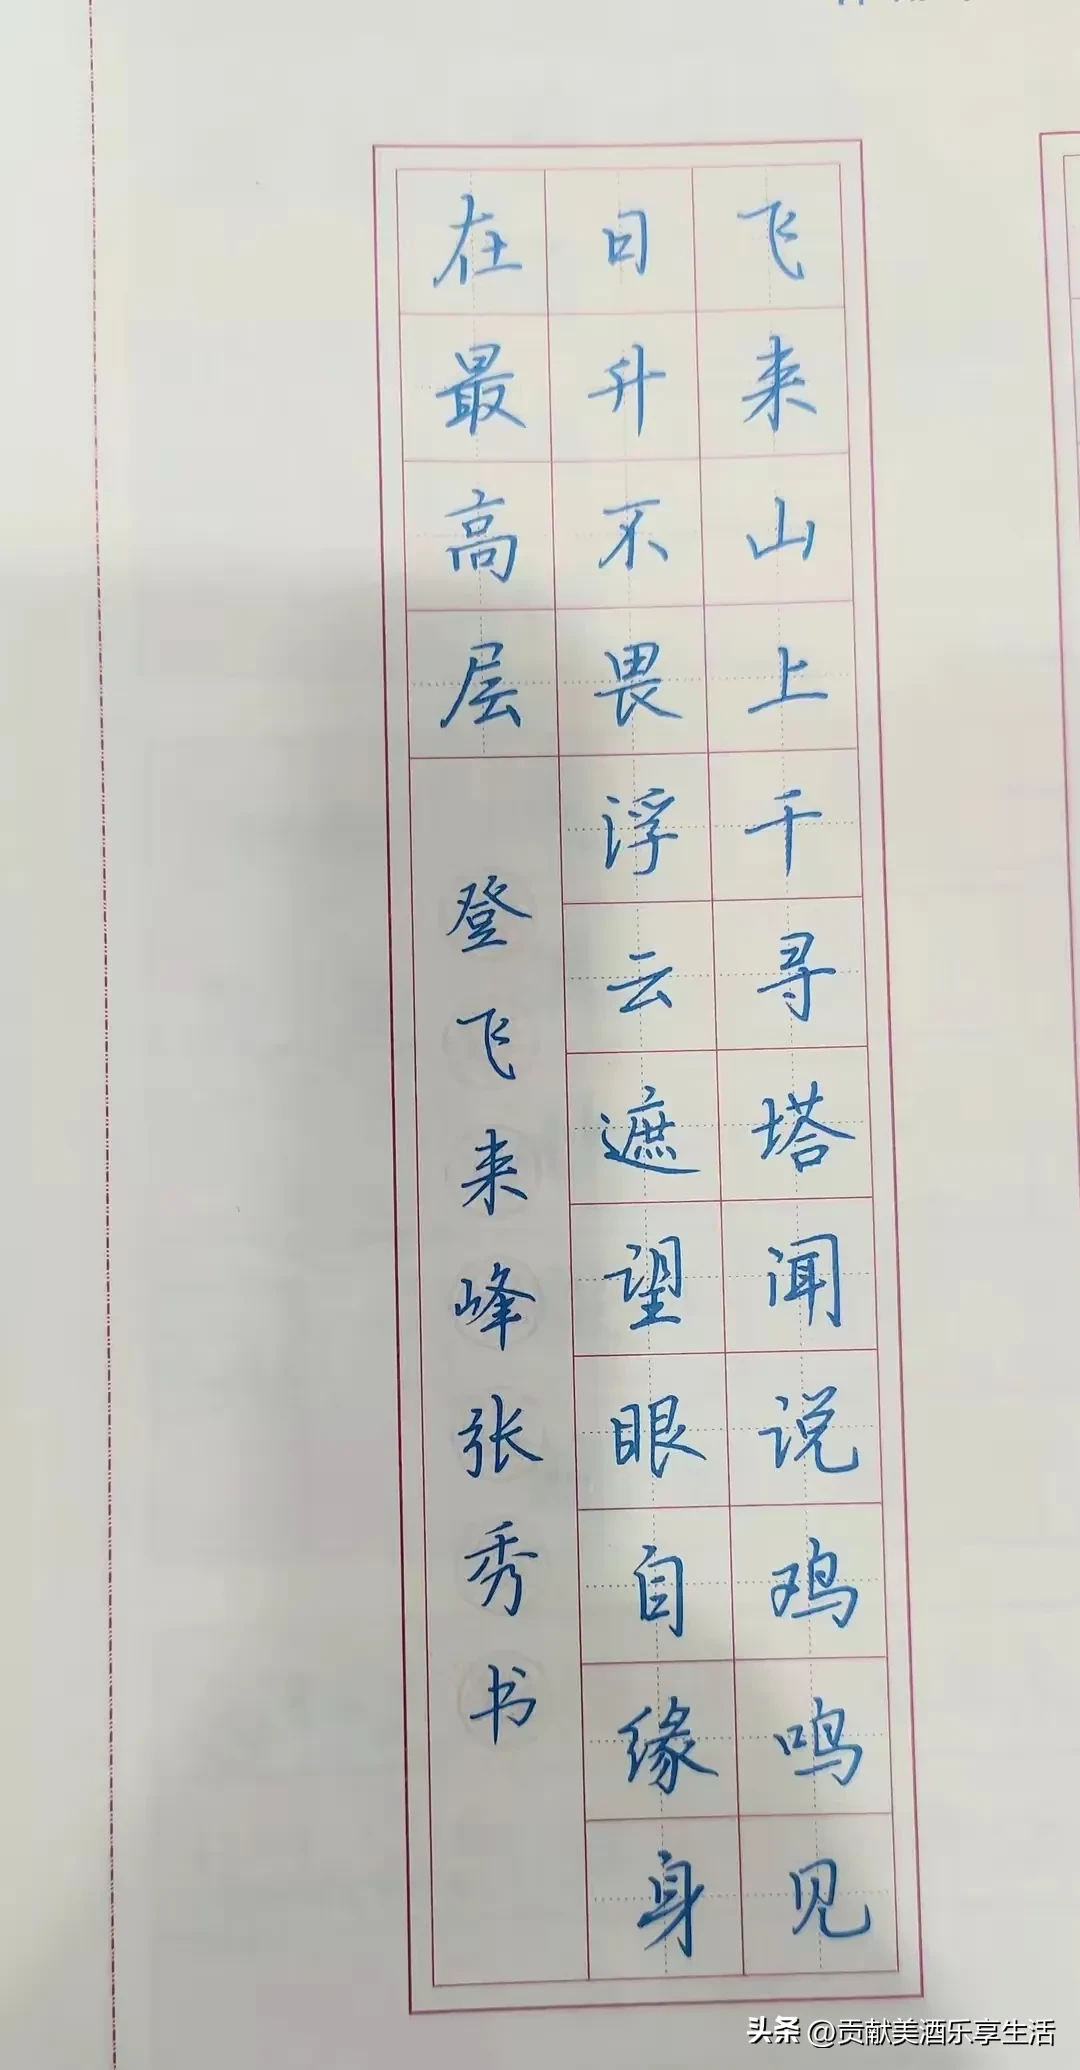 飞来山上千寻塔闻说鸡鸣见
日升不畏浮云遮望眼自缘身
在最高层
登飞来峰张秀书
头条 @贡献美酒乐享生活